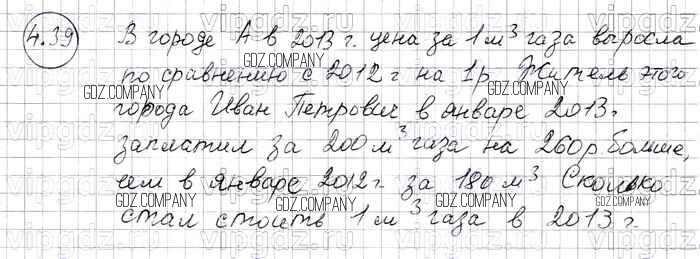 4.39 В городе А в 2013 г. цена за 1 м³ газа выросла
по сравнению с 2012 г на 1р. Житель этого
города Иван Петрович в январе 2013г
заплатил за 200 м³ газа на 260р больше,
чем в январе 2012 г. за 180 м³ Сколько
стал стоить 1 м³ газа в 2013 г.